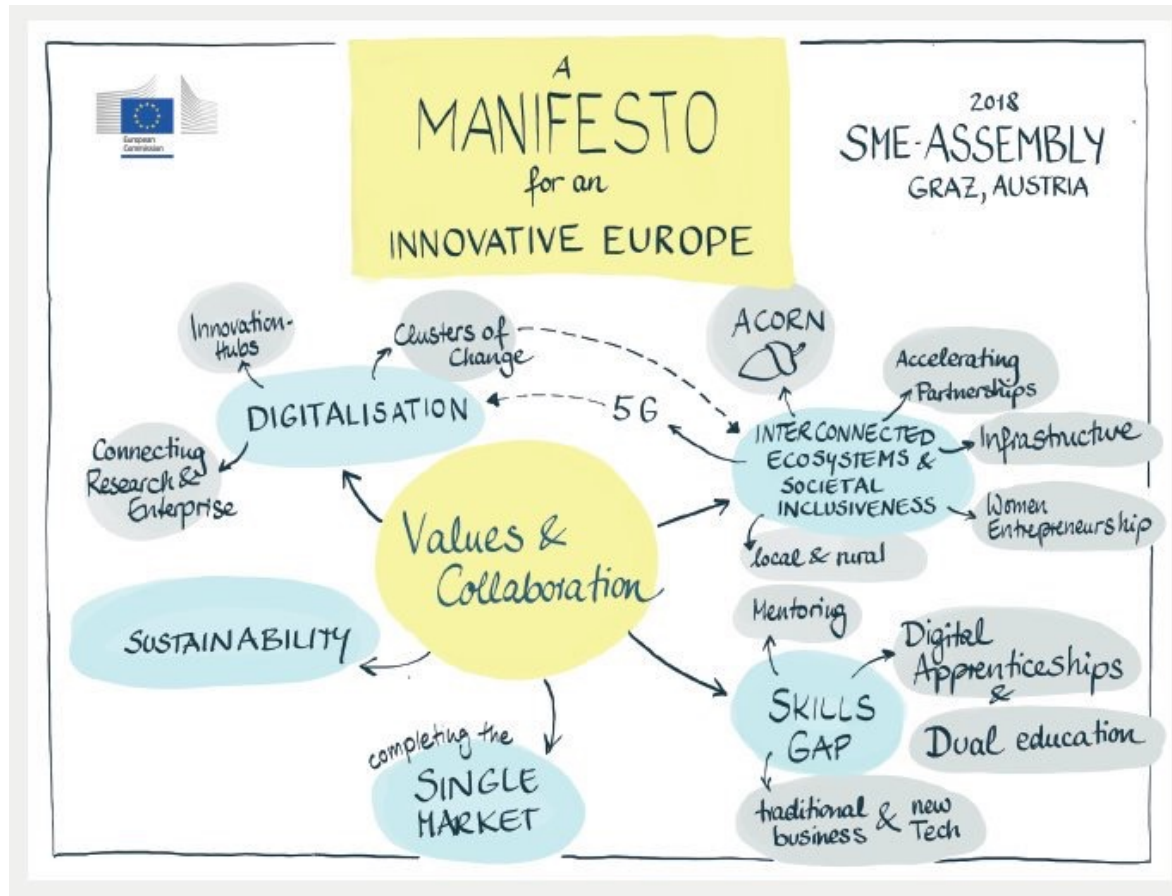 European
Commission
A
MANIFESTO
for an
INNOVATIVE EUROPE
2018
SME-ASSEMBLY
GRAZ, AUSTRIA
Innovation-
Hubs
Clusters of
Change
DIGITALISATION
Connecting
Research &
Enterprise
5G
ACORN
Accelerating
Partnerships
INTERCONNECTED
ECOSYSTEMS &
SOCIETAL
INCLUSIVENESS
Infrastructure
Women
Entrepreneurship
local & rural
Values &
Collaboration
SUSTAINABILITY
completing the
SINGLE
MARKET
Mentoring
SKILLS
GAP
Digital
Apprenticeships
&
Dual education
traditional
business & new
Tech